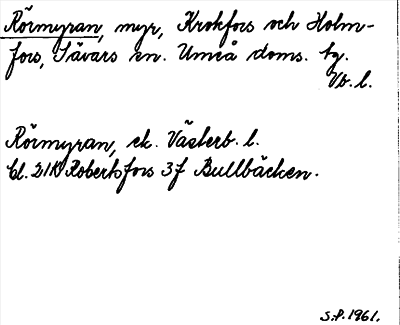 Rörmyran, myr, Krokfors och Holm-
fors, Sävars sn. Umeå doms. tg.
Vb. l.
Rörmyran, ek. Västerb. l.
bl. 21K Robertsfors 3f Bullbäcken.
S.P. 1961.